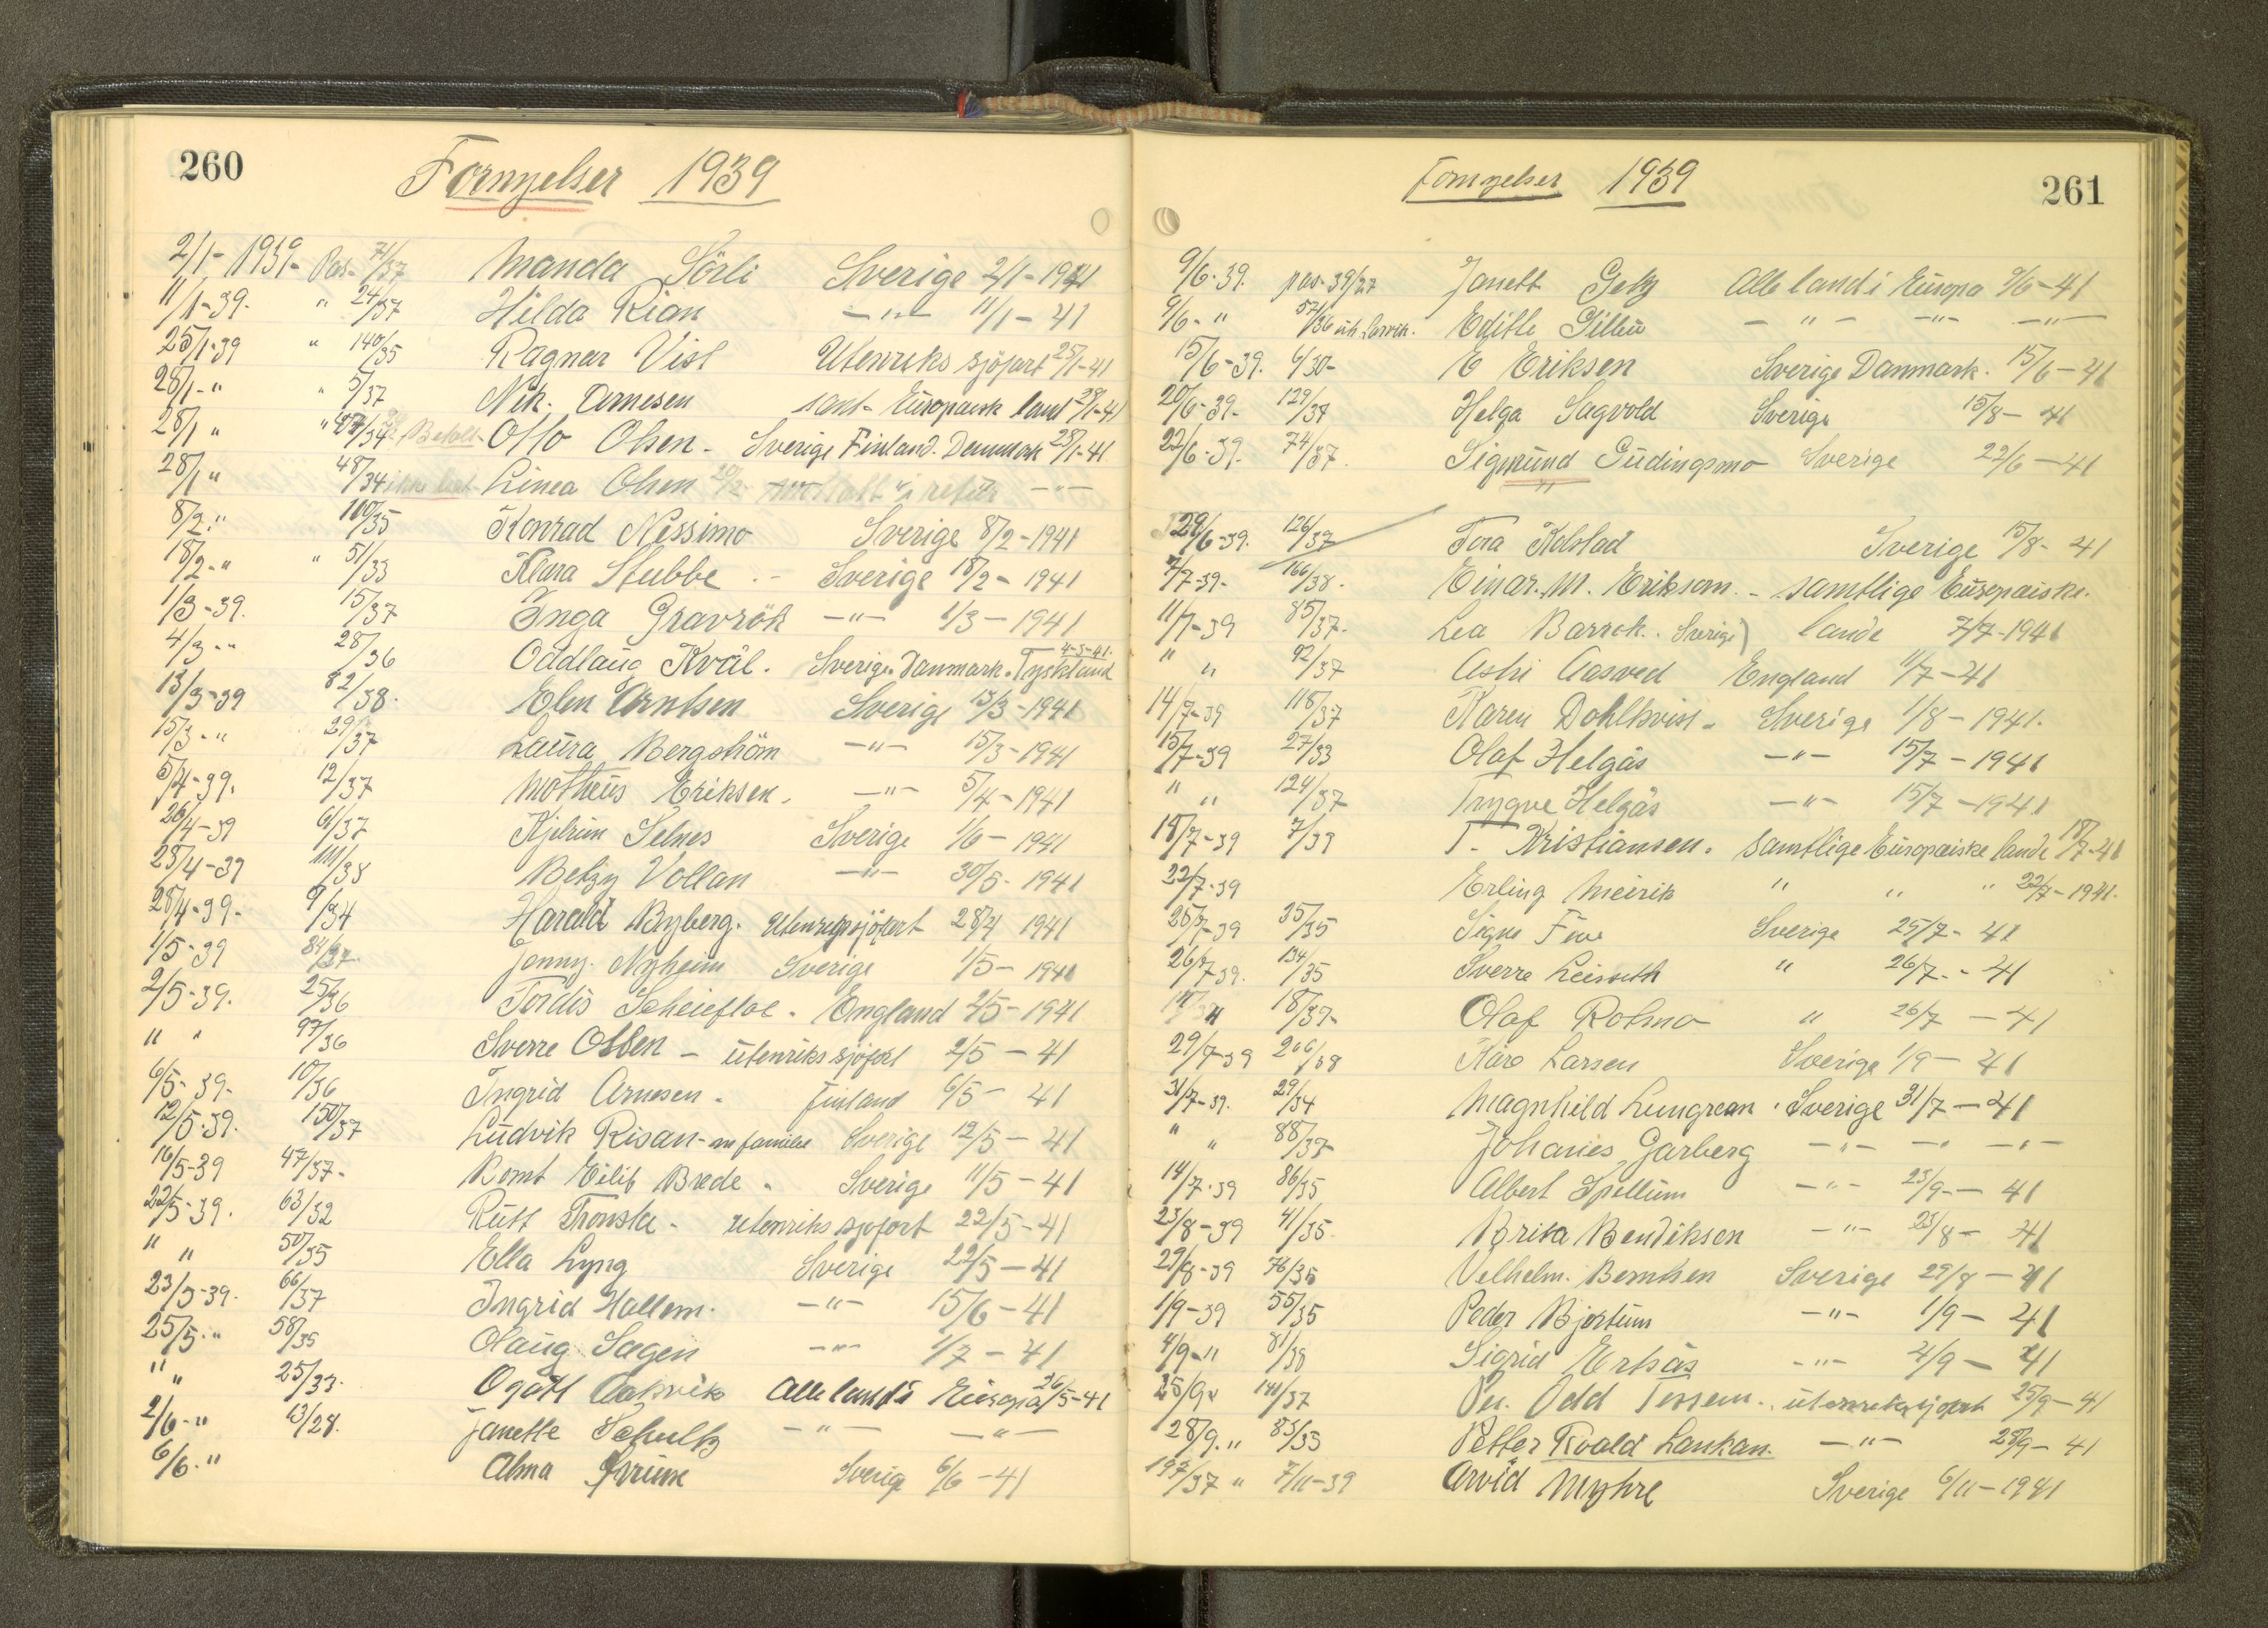 260
Fornyelser 1939
2/1-1939- Pas- 71/37 Manda Sörli Sverige 2/1-1941
11/1-39. " 24/37 Hilda Rian -"- 11/1-41
25/1-39 " 140/35 Ragnar Vist Utenriks sjöfart 25/1-41
28/1-" " 5/37 Nik. Arnesen samt- Europæisk land 28/1-41
28/1 " " 34 Betalt- Otto Olsen- Sverige Finland. Danmark 28/1-41
28/1 " 48/34 ikke bet- Linea Olsen -"-
8/2." 100/35 Konrad Nessimo Sverige 8/2-1941
18/2-" " 51/33 Klara Stubbe.- Sverige 18/2-1941
1/3-39. 15/37 Inga Gravrök -"- 1/3-1941
4/3-" 28/36 Oddlaug Kvål. Sverige. Danmark. Tyskland 4-3-41.
13/3-39 82/38. Elen Arntsen Sverige 13/3-1941
15/3-" 29/37 Laura Bergström -"- 15/3-1941
5/4-39. 12/37 Matheus Eriksen. -"- 5/4-1941
26/4-39 61/37 Kjelrun Selnes Sverige 1/6-1941
28/4-39 111/38 Betzy Vollan -"- 30/5-1941
28/4-39- 9/34 Harald Byberg. Utenriksjöfart 28/4 1941
1/5-39 84/37. Jenny. Nyheim Sverige 1/5-1941
2/5-39. 25/36 Tordis Scheiefloe. England 2/5-1941
" " 97/36 Sverre Olsen - utenriks sjöfart 2/5-41
6/5-39- 10/36 Ingrid Arnesen. Finland 6/5-41
12/5.39. 150/37 Ludvik Risan- m familie Sverige 12/5-41
16/5-39 47/37- Bernt Eilif Brede. Sverige 11/5-41
22/5-39. 63/32 Rutt Tronsta- utenriks sjofart 22/5-41
" " 50/35 Ella Lyng Sverige 22/5-41
23/5-39. 66/37 Ingrid Hallem. -"- 15/6-41
25/5." 58/35 Olaug Sagen -"- 1/7-41
" " 25/33. Ogott Aakvik Alle land i Europa 26/5-41
2/6-" 13/28. Janette Schultz -"- -"-
6/6." Alma Sverig 6/6-41
261
Fornyelser 1939
9/6-39. pas-39/27 Janett Getz Alle land i Europa 9/6-41
9/6-" 57/36 Edith Gillu -"- -"- -"-
15/6-39. 6/30- E Eriksen Sverige Danmark. 15/6-41
20/6-39- 129/37 Helga Sagvold Sverige 15/8-41
22/6-39. 74/37. Sigmund Gudingsmo Sverige 22/6-41
29/6-39. 126/37 Tora Kolstad Sverige 15/8-41
7/7-39- 166/38. Einar. M. Eriksen.- samtlige Europæiske.
11/7-39 85/37. Lea Barrek. Sverige) lande 7/7-1941
" " 92/37 Aasved England 11/7-41
14/7-39 118/37 Karen Dahlkvist- Sverige 1/8-1941.
15/7-39 27/33 Olaf Helgås -"- 15/7-1941
" " 124/37 Trygve Helgås -"- 15/7-1941
18/7-39 7/39 T. Kristiansen. Samtlige Europæiske lande 18/7-41
22/7-39 Erling Meirik " " " 22/7-1941.
25/7-39 35/35 Signe Five Sverige 25/7-41
26/7-39. 134/35 Sverre Leirseth " 26/7--41
18/39- Olaf Rolmo " 26/7-41
29/7-39 206/38 Kåre Larsen Sverige 1/9-41
31/7-39. 29/34 Magnhild Lungrean. Sverige 31/7-41
" " 88/37 Johanes Garberg -"- -" -"-
14/7-39 86/35 Albert Spillum -"- 23/9-41
23/8-39 41/35. Brita Bendiksen -"- 23/8-41
29/8-39 76/35 Velhelm. Berntsen Sverige 29/8-41
1/9-39 55/35 Peder Bjertum -"- 1/9-41
4/9-" 81/38 Sigrid Ertsås -"- 4/9-41
25/9" 141/37 Odd Tessem.. utenrikssjofart 25/9-41
28/9." 83/35 Petter Roald Lankan. -"- 28/9-41
197/37 " 7/11-39 Arvid Myhre Sverige 6/11-1941